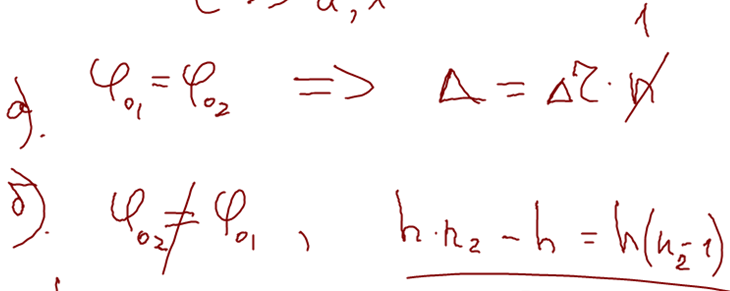 1
а). φ₀₁ = φ₀₂ => Δ = Δr · n
б). φ₀₂ ≠ φ₀₁ , h·n₂ - h = h(n₂-1)